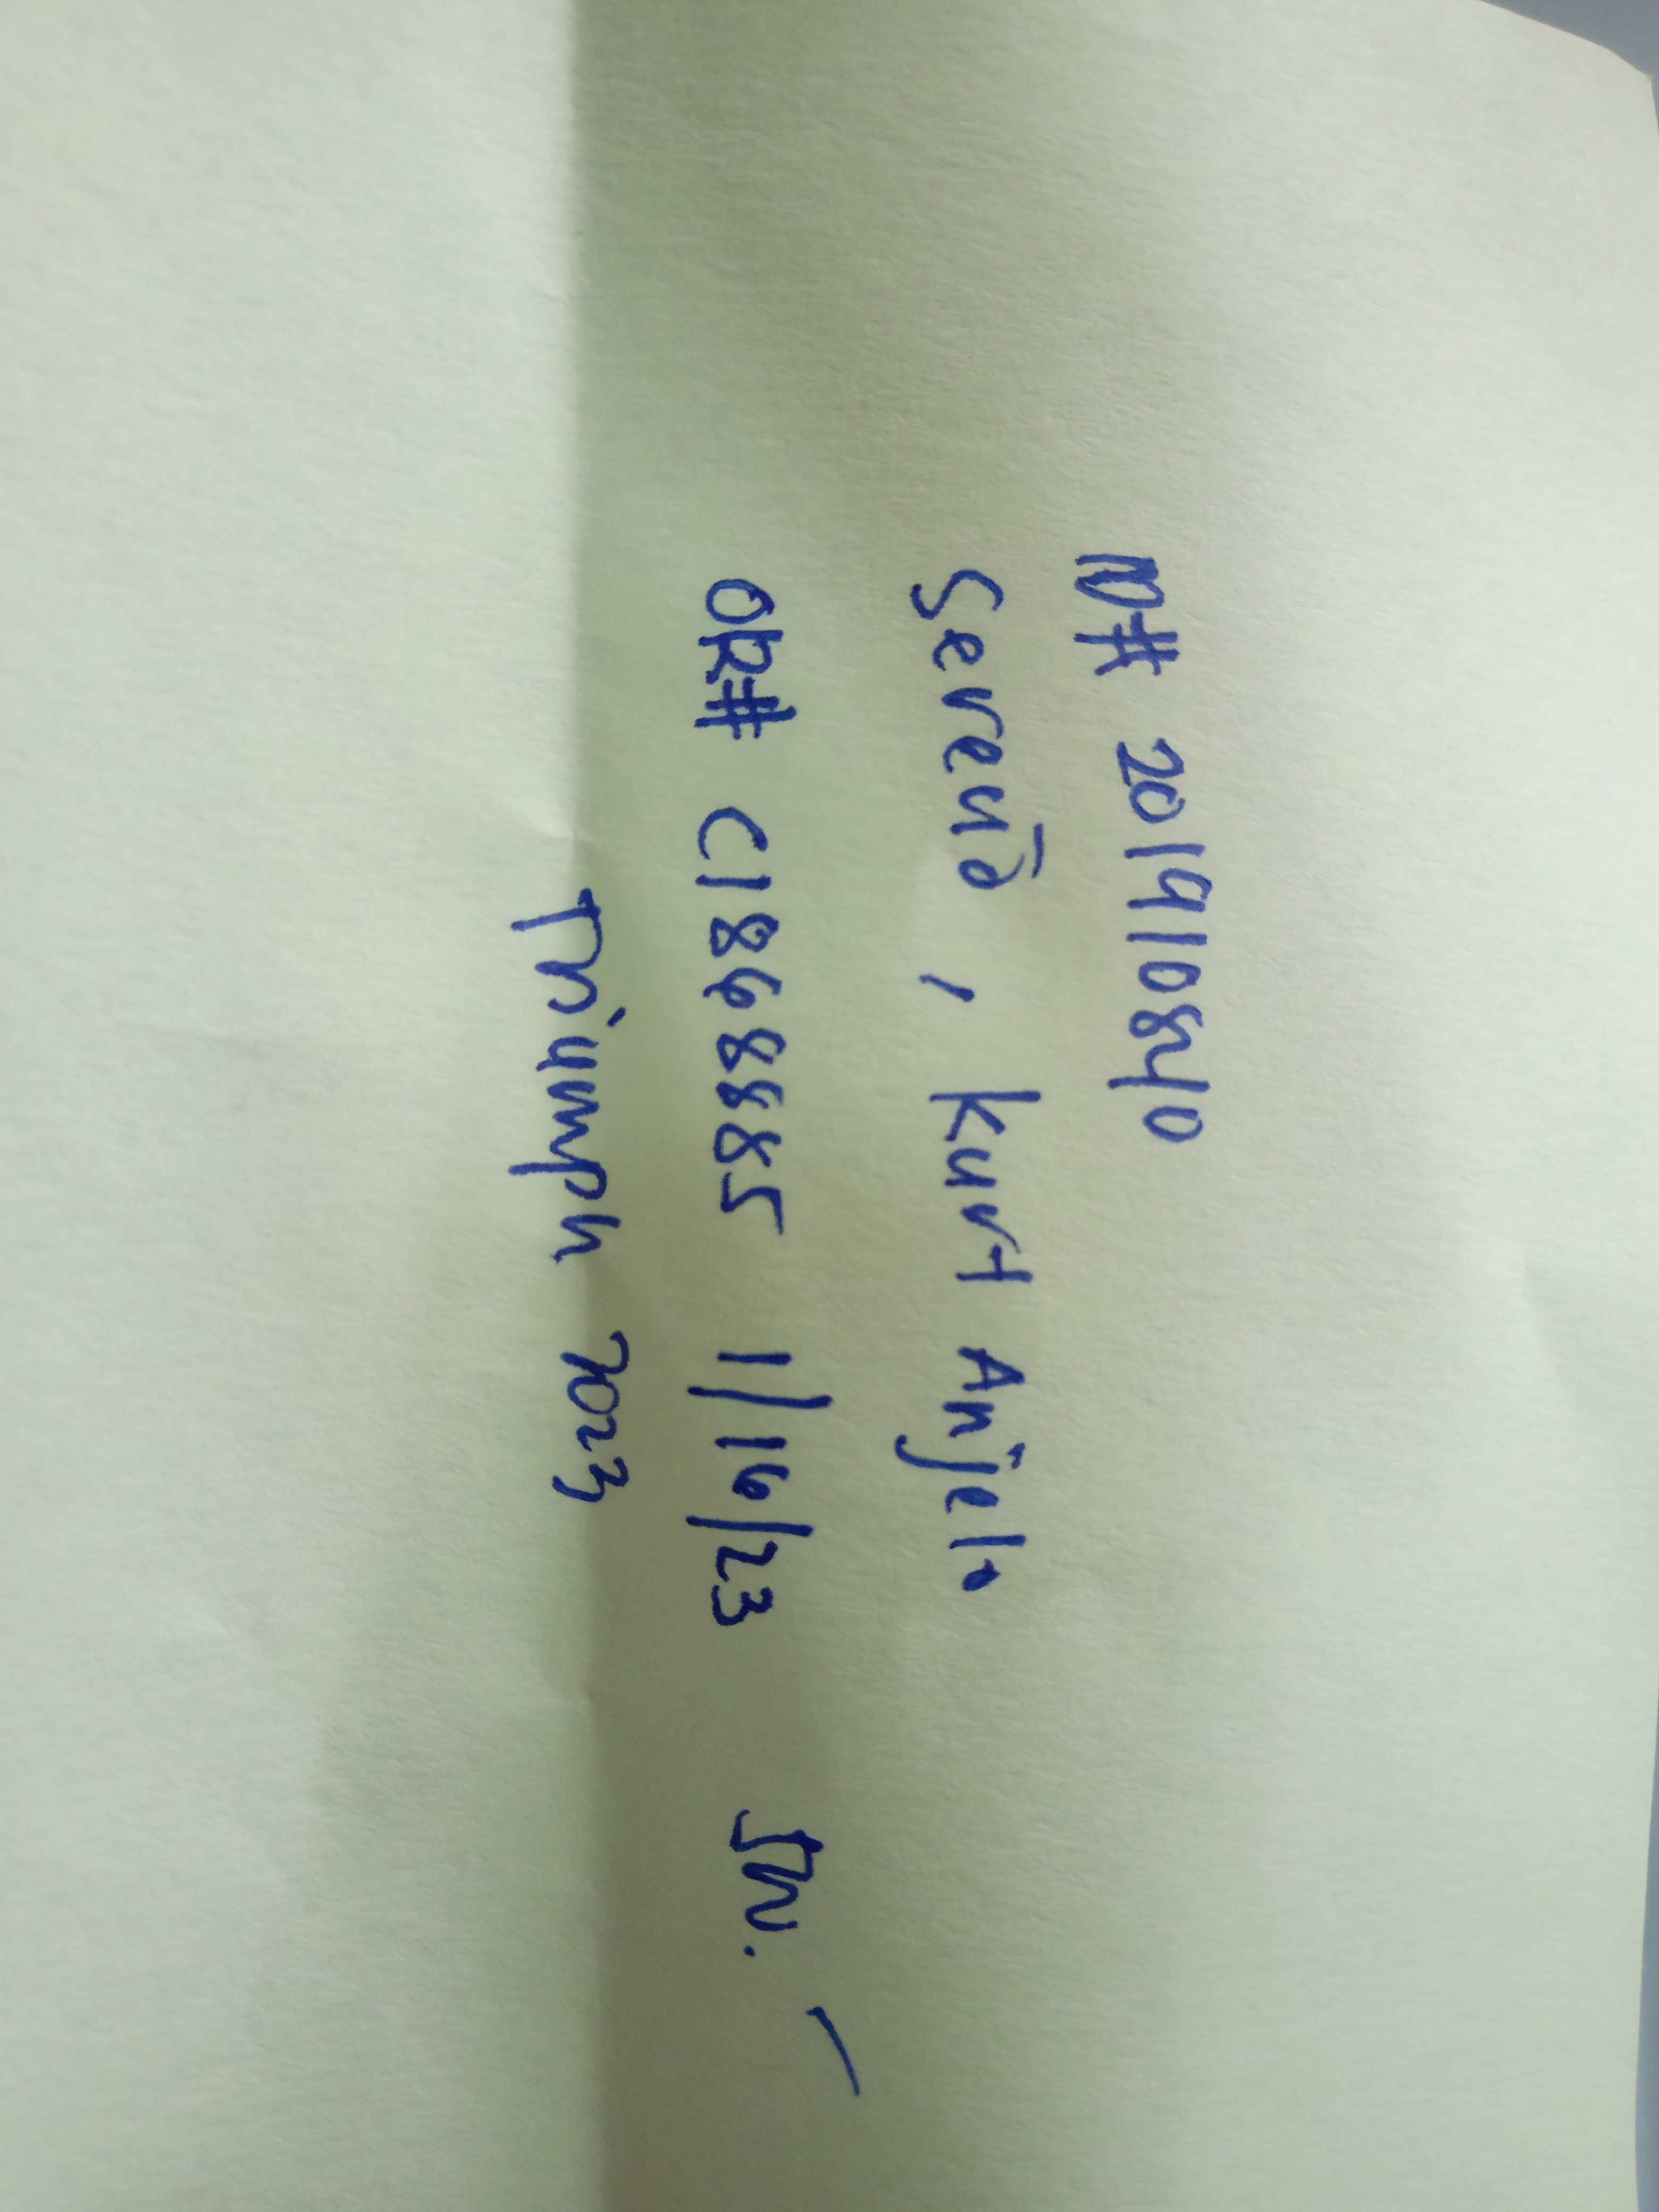 ID# 201910840
Sereño, Kurt Anjelo
OR# C1868885 1/16/23 500.-
Triumph 2023